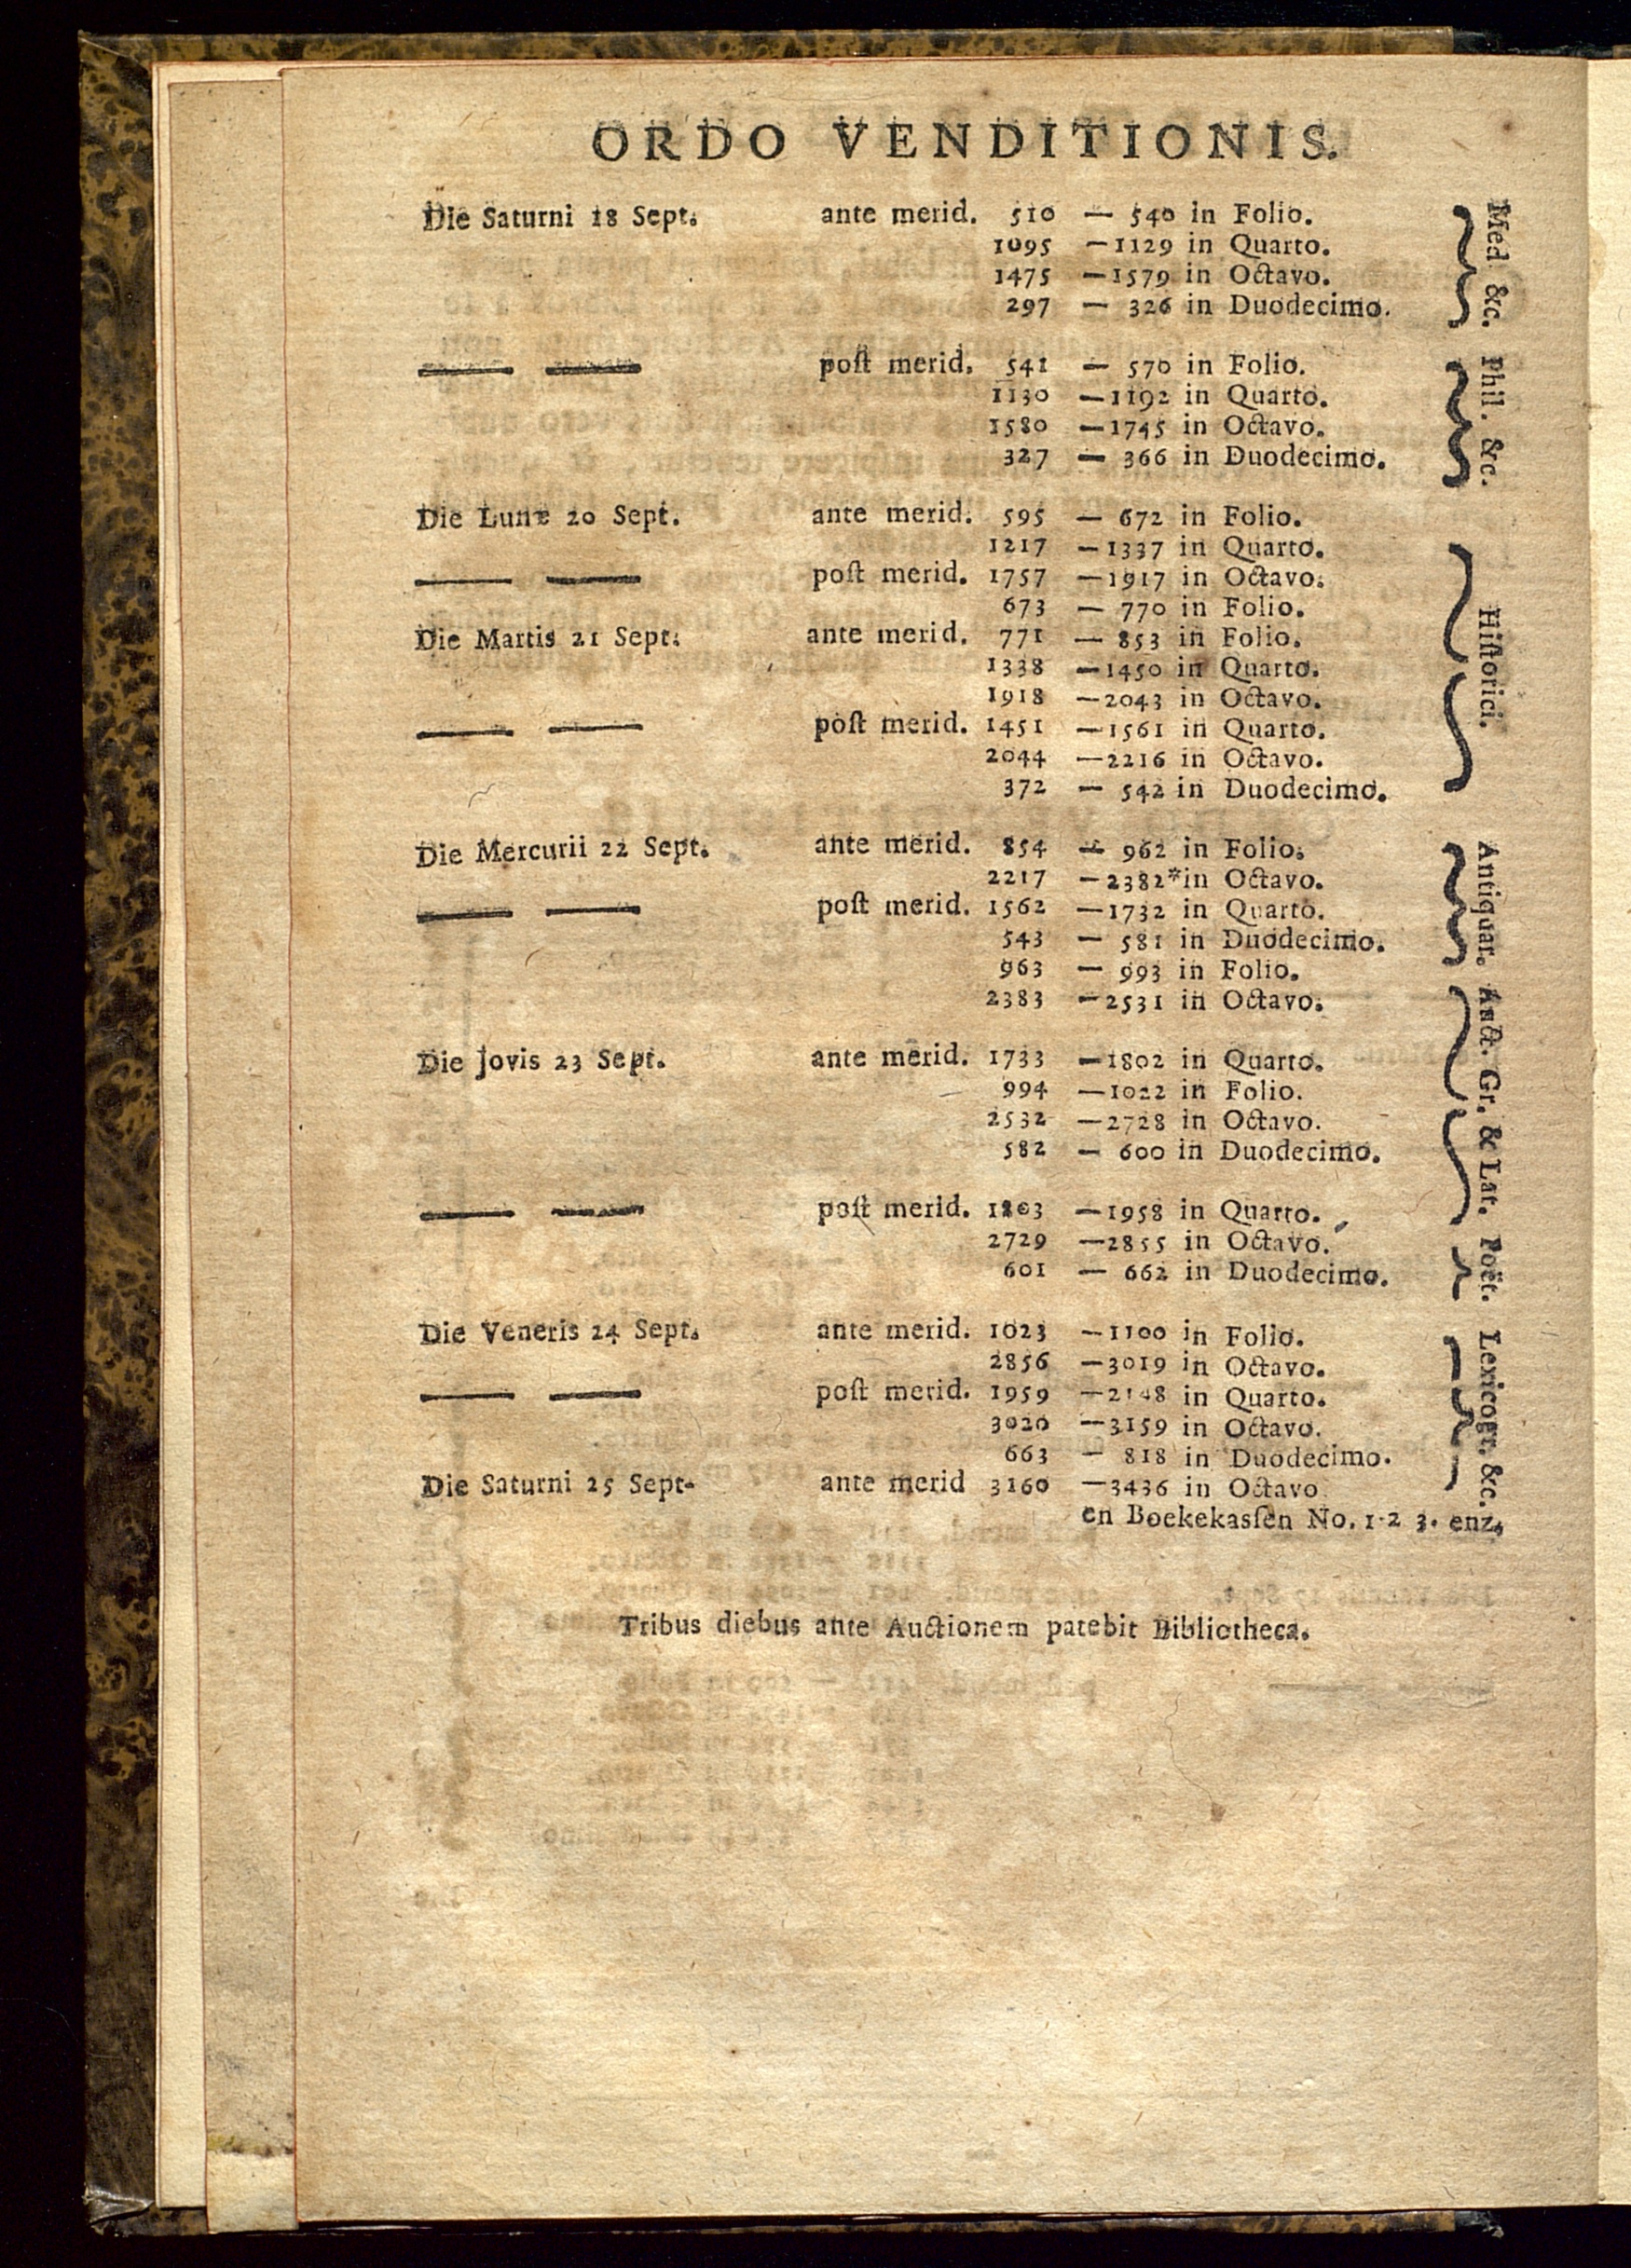 ORDO VENDITIONIS.
Die Saturni 18 Sept. ante merid. 510 — 540 in Folio.
1095 —1129 in Quarto.
1475 —1579 in Octavo.
297 — 326 in Duodecimo.
Med &c.
—— —— poſt merid. 541 — 570 in Folio.
1130 —1192 in Quarto.
1580 —1745 in Octavo.
327 — 366 in Duodecimo.
Phil. &c.
Die Lunæ 20 Sept. ante merid. 595 — 672 in Folio.
1217 —1337 in Quarto.
—— —— poſt merid. 1757 —1917 in Octavo.
673 — 770 in Folio.
Die Martis 21 Sept. ante merid. 771 — 853 in Folio.
1338 —1450 in Quarto.
1918 —2043 in Octavo.
—— —— poſt merid. 1451 —1561 in Quarto.
2044 —2216 in Octavo.
372 — 542 in Duodecimo.
Hiſtorici.
Die Mercurii 22 Sept. ante merid. 854 — 962 in Folio.
2217 —2382*in Octavo.
—— —— poſt merid. 1562 —1732 in Quarto.
543 — 581 in Duodecimo.
Antiquar.
963 — 993 in Folio.
2383 —2531 in Octavo.
Die Jovis 23 Sept. ante merid. 1733 —1802 in Quarto.
994 —1022 in Folio.
2532 —2728 in Octavo.
582 — 600 in Duodecimo.
Auct. Gr. & Lat.
—— —— poſt merid. 1803 —1958 in Quarto.
2729 —2855 in Octavo.
601 — 662 in Duodecimo.
Poët.
Die Veneris 24 Sept. ante merid. 1023 —1100 in Folio.
2856 —3019 in Octavo.
—— —— poſt merid. 1959 —2148 in Quarto.
3020 —3159 in Octavo.
663 — 818 in Duodecimo.
Die Saturni 25 Sept- ante merid 3160 —3436 in Octavo
Lexicogr. &c.
en Boekekasſen No. 1-2 3. enz.
Tribus diebus ante Auctionem patebit Bibliotheca.